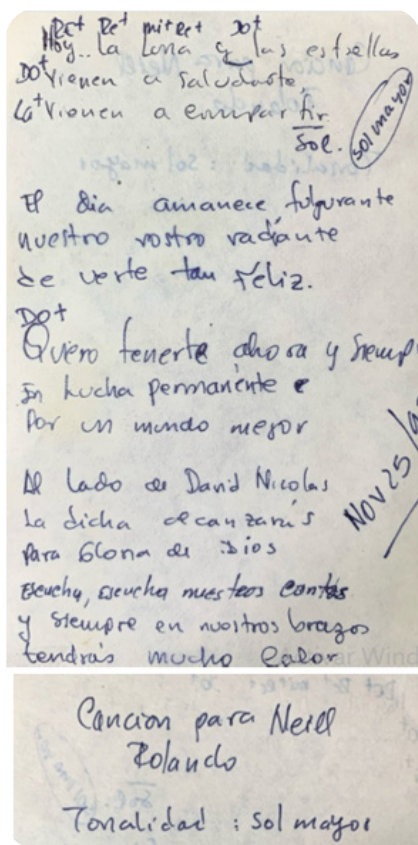 Re+ Re+ mi Re+ Do+
Hoy.. la Luna y las estrellas
Do+ vienen a saludarte,
La+ vienen a compartir
Sol.
sol mayor
El dia amanece fulgurante
nuestro rostro radiante
de verte tan Feliz.
Do+
Quero tenerte ahora y siemp
En Lucha permanente
Por un mundo mejor
Nov 25/
Al lado de David Nicolas
La dicha alcanzarás
Para Gloria de Dios
escucha, escucha nuestros cantos
y siempre en nuestros brazos
tendrás mucho Calor
Cancion para Neill
Rolando
Tonalidad : Sol mayor